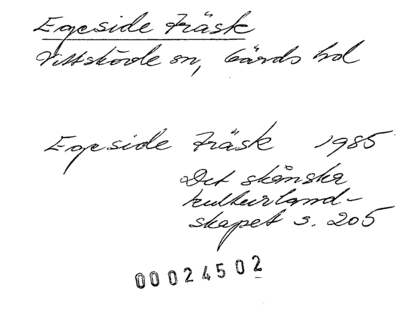 Egeside Fräsk
Vittskövle sn, Gärds hd
Egeside Fräsk 1985
Det skånska
kulturland-
skapet s. 205
00024502